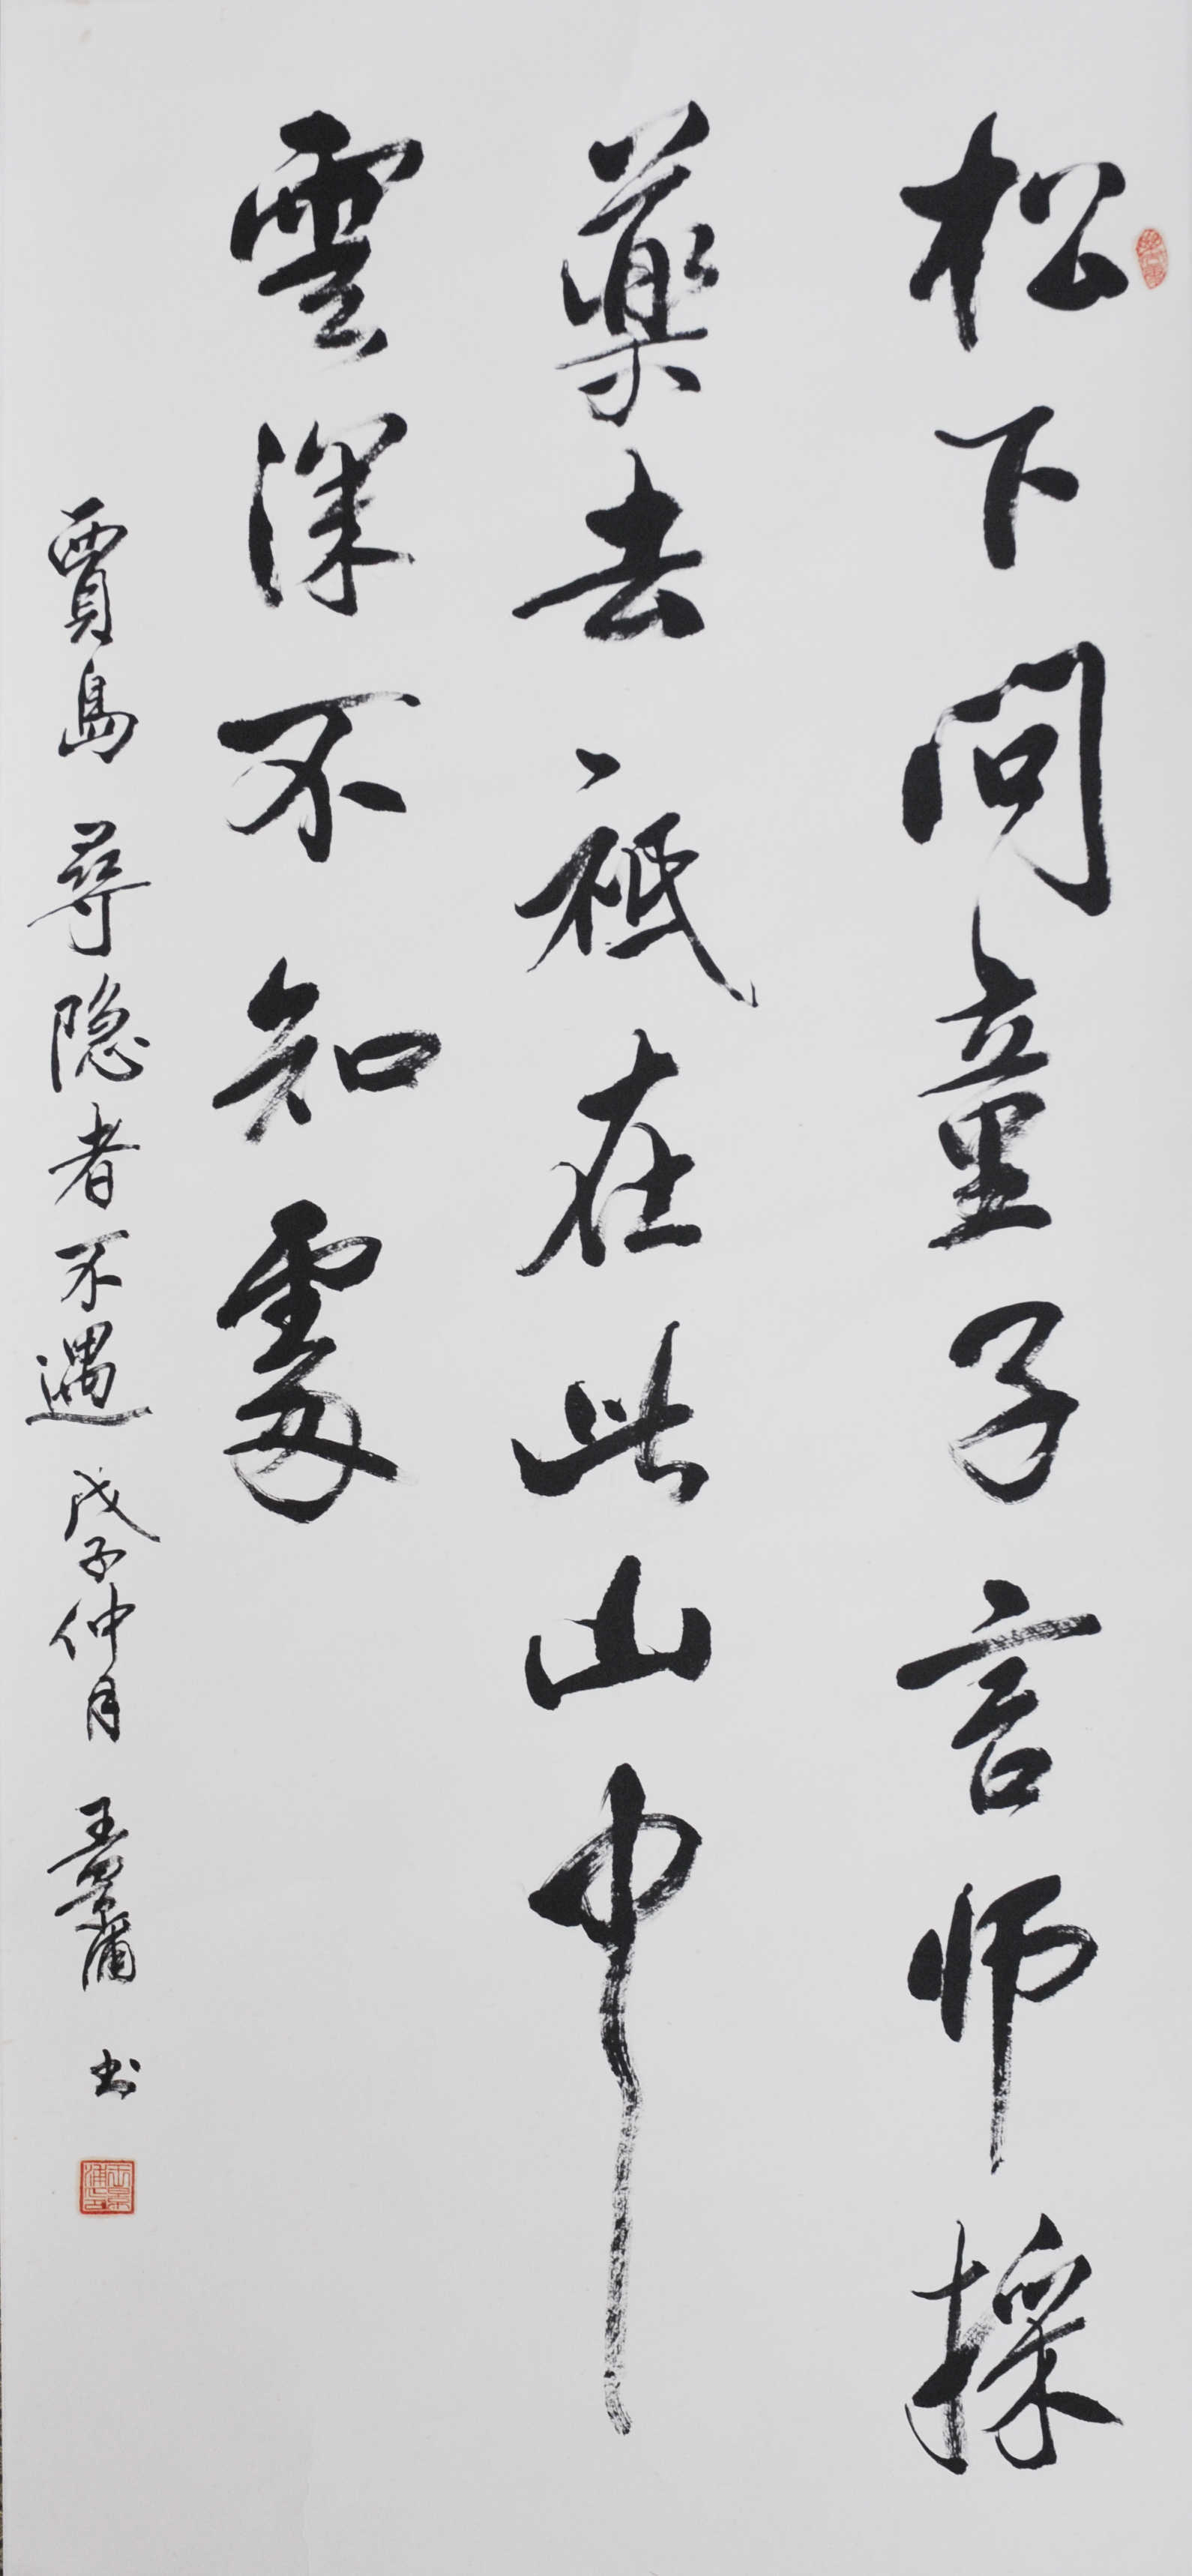 松下问童子言师採
藥去祗在此山中
雲深不知處
賈島 尋隐者不遇 戊子仲月 王景蒲 书